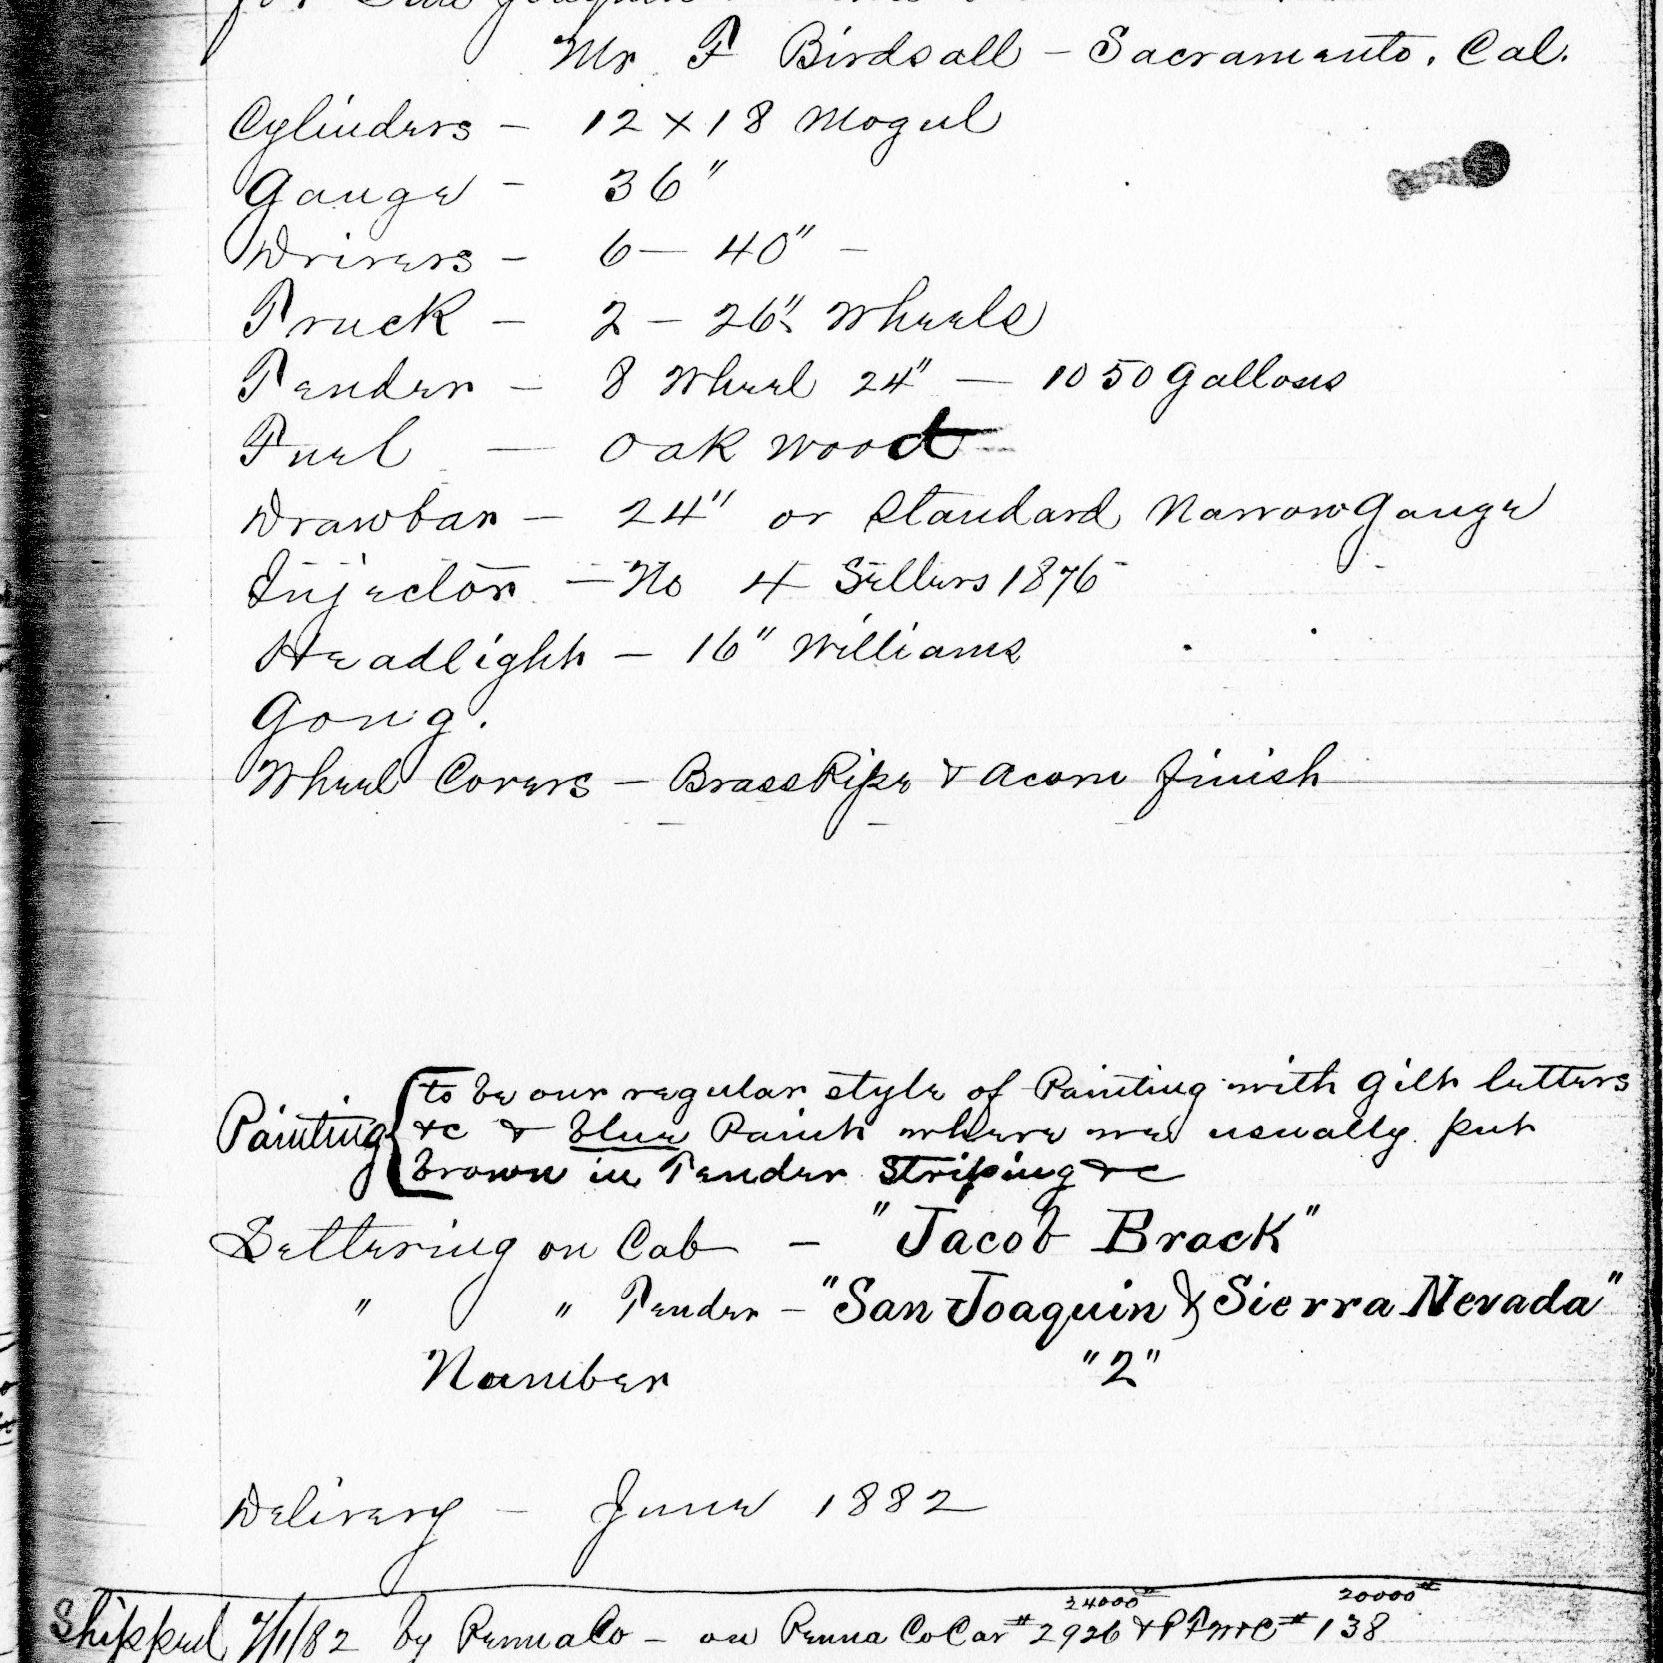 for San Joaquin
Mr F Birdsall - Sacramento, Cal.
Cylinders - 12 x 18 Mogul
Gauge - 36"
Drivers - 6 - 40" -
Truck - 2 - 26" Wheels
Tender - 8 Wheel 24" - 1050 Gallons
Fuel - Oak Wood
Drawbar - 24" or Standard Narrow Gauge
Injector - No 4 Sellers 1876
Headlight - 16" Williams
Gong.
Wheel Covers - Brass Pipe & Acorn finish
Painting { to be our regular style of Painting with Gilt letters
&c & blue Paint where we usually put
brown in Tender Striping &c
Lettering on Cab - "Jacob Brack"
" " Tender - "San Joaquin & Sierra Nevada"
Number "2"
Delivery - June 1882
24000# 20000#
Shipped 7/1/82 by Penna Co - on Penna Co Car # 2926 & # 138